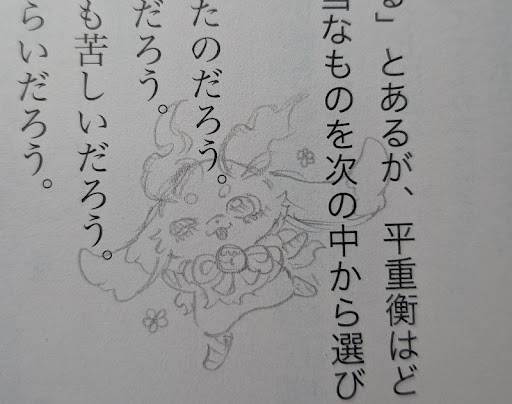 る」とあるが、平重衡はど
当なものを次の中から選び
たのだろう。
だろう。
も苦しいだろう。
らいだろう。